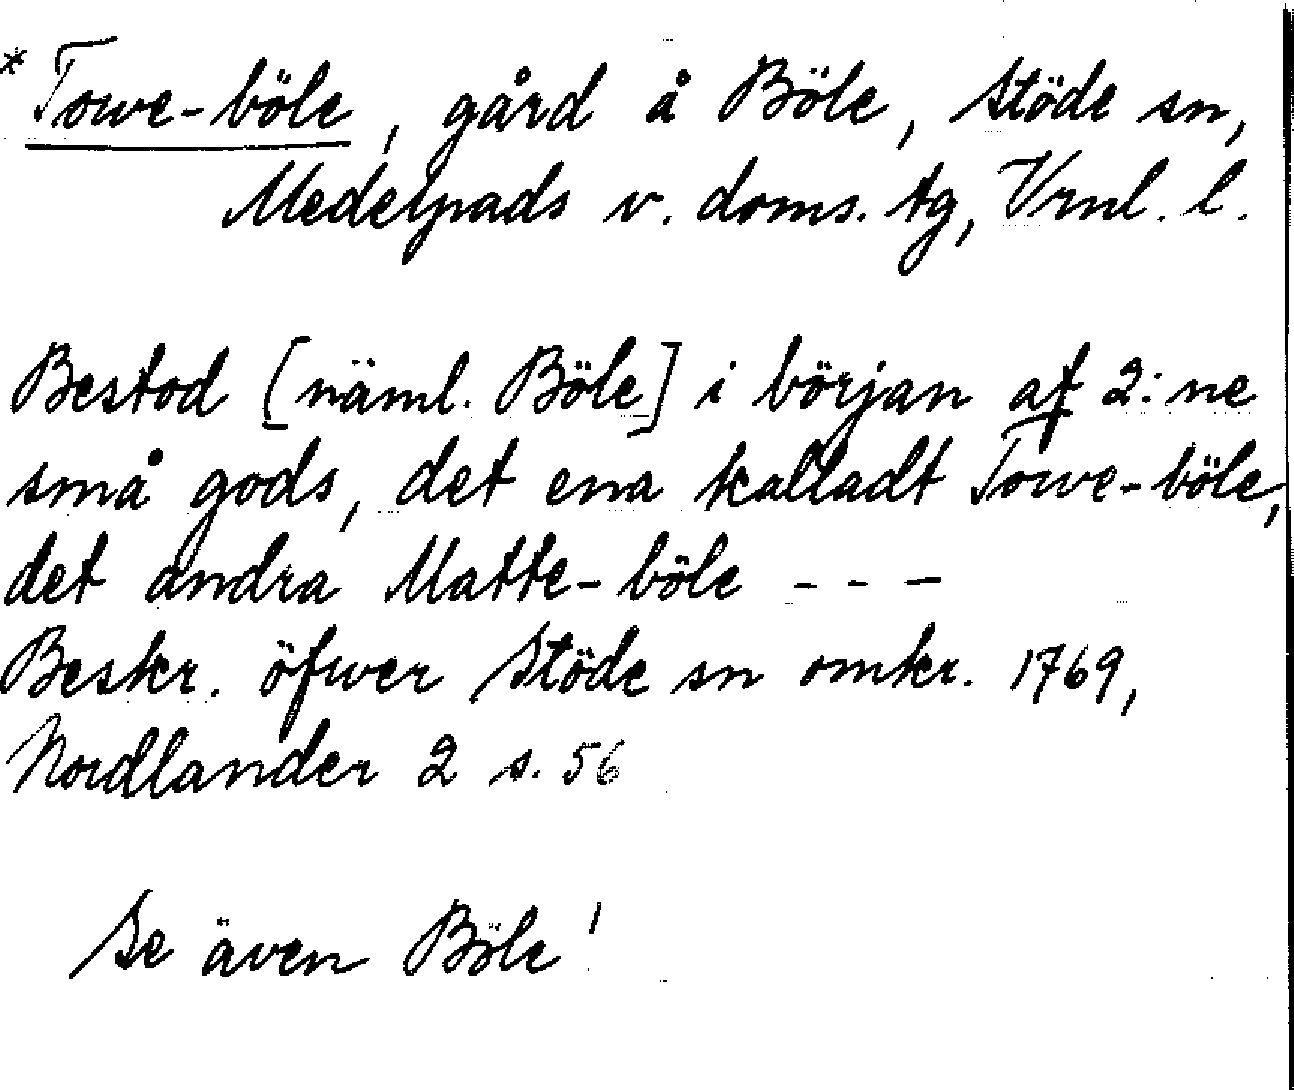 * Towe-böle, gård å Böle, Stöde sn,
Medelpads v. doms. tg, Vrnl. l.
Bestod [näml. Böle] i början af 2:ne
små gods, det ena kalladt Towe-böle,
det andra Matte-böle - - -
Beskr. öfwer Stöde sn omkr. 1769,
Nordlander 2 s. 56
Se även Böle!